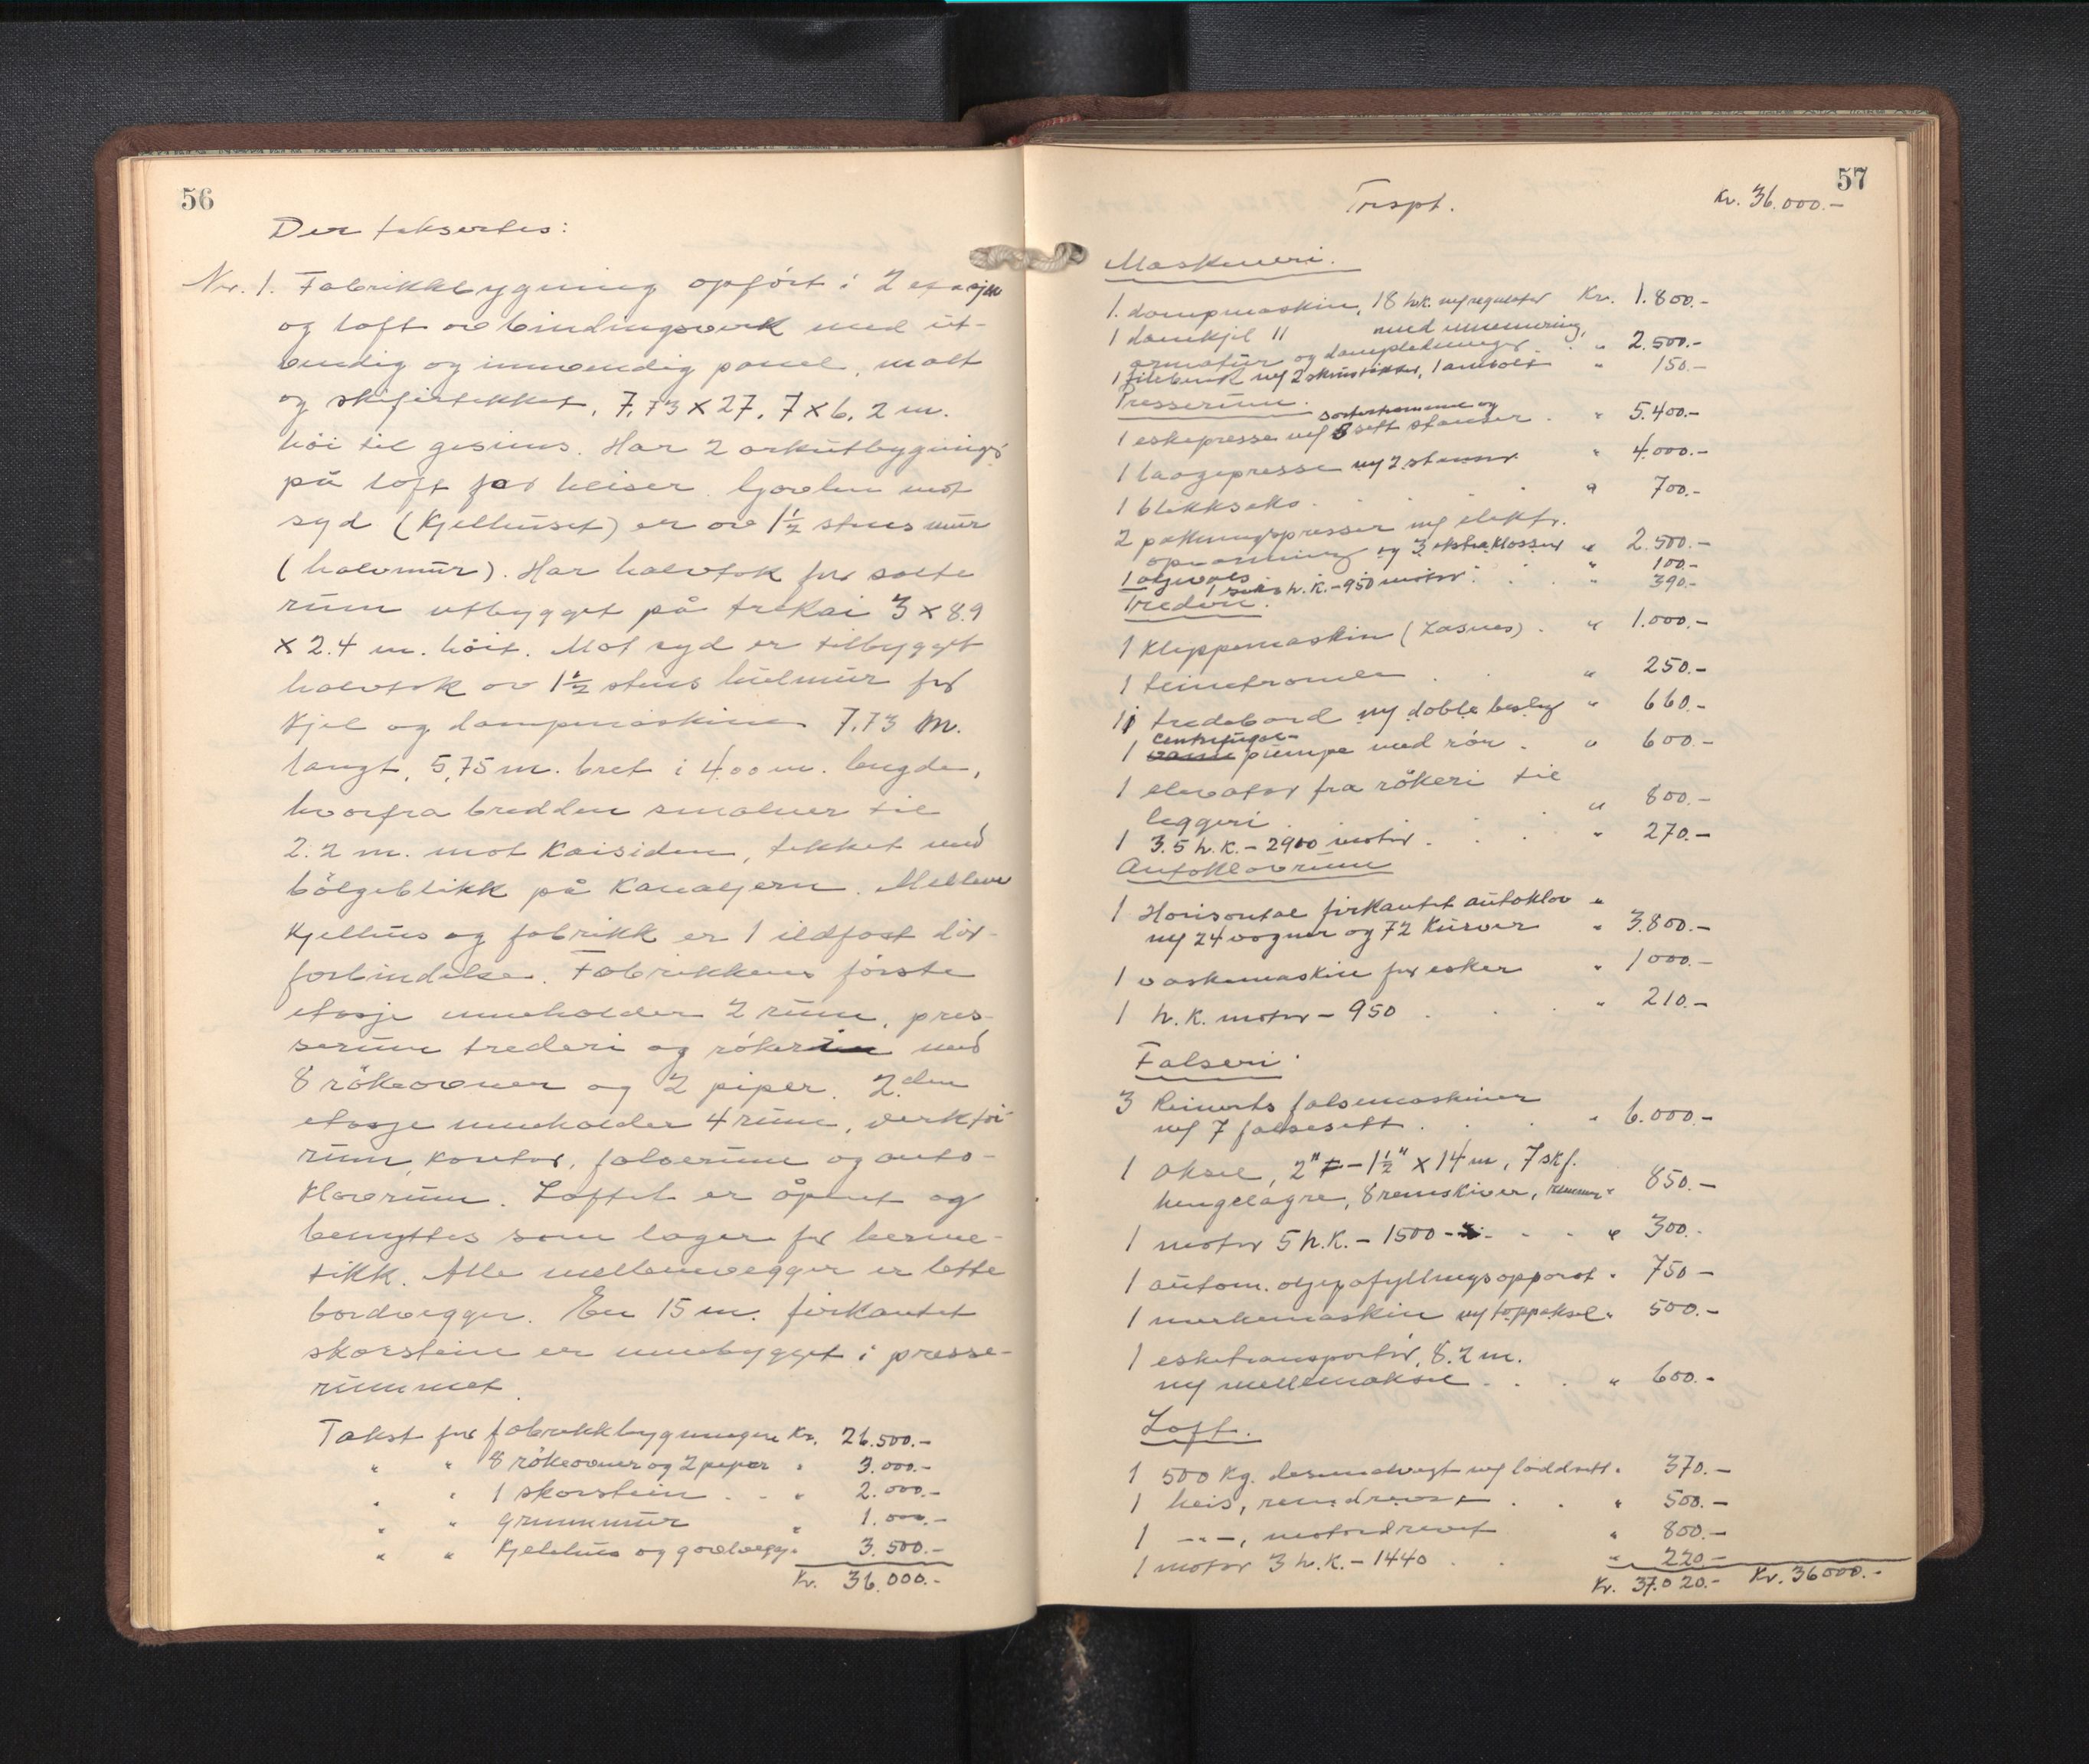 56
Der taksertes:
Nr. 1. Fabrikkbygning opført i 2 etasjer
og loft av bindingsverk med ut-
vendig og innvendig panel, malt
og skifertekket, 7,73 x 27,7 x 6,2 m.
höi til gesims. Har 2 arkutbygninger
på loft for heiser. Gavlen mot
syd (Kjelhuset) er av 1½ stens mur
(halvmur). Har halvtak for salte
rum utbygget på trekai 3 x 8.9
x 2.4 m. höit. Mot syd er tilbygget
halvtak av 1½ stens hulmur for
Kjel og dampmaskine 7.73 m.
langt, 5,75 m. bret i 4,00 m. lengde,
hvorfra bredden smalner til
2.2 m. mot Kaisiden, tekket med
bölgeblikk på Kanaljern. Mellem
Kjelhus og fabrikk er 1 ildfast dör-
forbindelse. Fabrikkens förste
etasje inneholder 2 rum, pres-
serum trederi og rökeri med
8 rökeovner og 2 piper. 2.den
etasje inneholder 4 rum, verktöi-
rum, Kontor, falserum og auto-
klavrum. Loftet er åpent og
benyttes som lager for herme-
tikk. Alle mellemvegger er lette
bordvegger. En 15 m. firkantet
skorstein er innebygget i presse-
rummet.
Takst for fabrikkbygningen Kr. 26.500.-
" " 8 rökeovner og 2 piper " 3.000.-
" " 1 skorstein . - " 2.000.-
" " grunnmur " 1.000.-
" " Kjelhus og gavlvegg " 3.500.-
Kr. 36.000.-
57
Trspt. Kr. 36.000.-
Maskineri.
1. dampmaskin, 18 h.k. m/regulator Kr. 1.800.-
1 damkjel 11 med innmuring,
armatur og dampledninger . " 2.500.-
1 filebenk m/ 2 skrustikker, 1 ambolt " 150.-
Presserum.
sorterramme og
1 eskepresse m/ 8 sett stanser . " 5.400.-
1 laagepresse m/ 2 stanser " 4.000.-
1 blikksaks . . . " 700.-
2 pakningspresser m/ elektr.
opvarming og 3 ekstra klosser " 2.500.-
1 oljevals " 100.-
1 h.k. - 950 motor . . " 390.-
Trederi.
1 Klippemaskin (Lasnes) . " 1.000.-
1 teinetromle . " 250.-
11 tredebord m/ doble beslag " 660.-
centrifugal-
1 pumpe med rör . " 600.-
1 elevator fra rökeri til
leggeri . . " 800.-
1 3.5 h.k. - 2900 motor . . " 270.-
Autoklavrum
1 Horisontal firkantet autoklav "
m/ 24 vogner og 72 Kurver " 3.800.-
1 vaskemaskin for esker " 1000.-
1 h.k. motor - 950 . . . " 210.-
Falseri.
3 Reinerts falsemaskiner
m/ 7 falsesett . . . " 6.000.-
1 aksel, 2" - 1½" x 14 m, 7 skf.
hengelagre, 8 remskiver, remmer " 850.-
1 motor 5 h.k. - 1500 - . . " 300.-
1 autom. oljepåfyllingsapparat " 750.-
1 merkemaskin m/ toppaksel " 500.-
1 esketransportör, 8.2 m.
m/ mellemaksel . . . " 600.-
Loft.
1 500 Kg. desimalvegt m/ loddsett " 370.-
1 heis, remdrevet . . " 500.-
1 -"-, motordrevet " 800.-
1 motor 3 h.k. - 1440 . . " 220.-
Kr. 37.020.- Kr. 36000.-